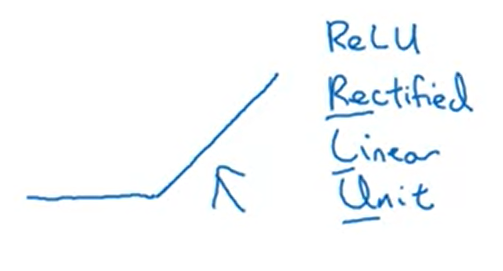 ReLU
Rectified
Linear
Unit